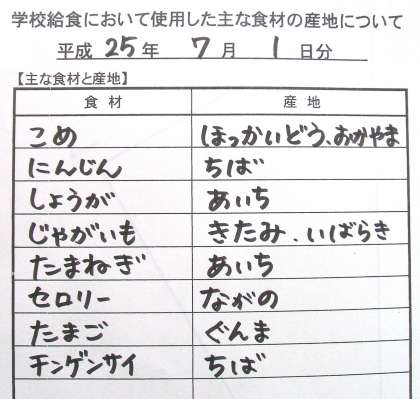 学校給食において使用した主な食材の産地について
平成 25 年 7 月 1 日分
【主な食材と産地】
食材 産地
こめ ほっかいどう、おかやま
にんじん ちば
しょうが あいち
じゃがいも きたみ、いばらき
たまねぎ あいち
セロリー ながの
たまご ぐんま
チンゲンサイ ちば